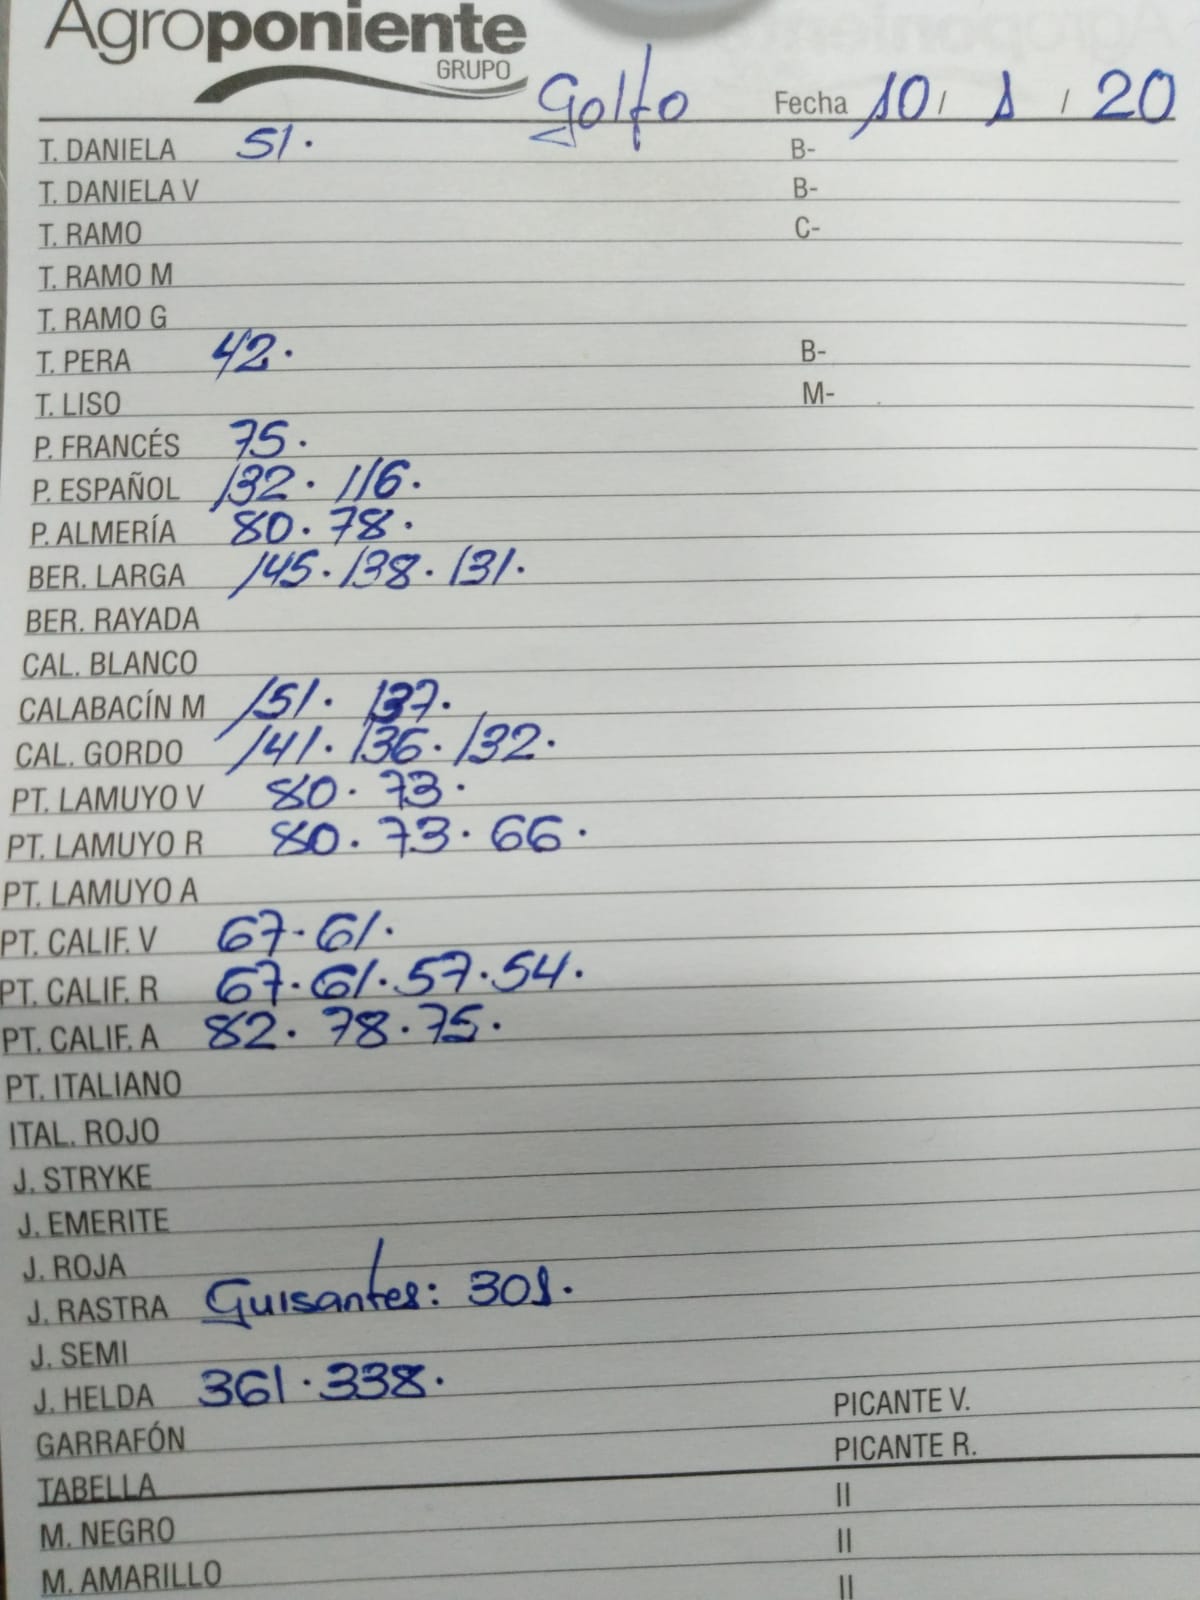 Agroponiente
GRUPO
Golfo Fecha 10 / 1 / 20
T. DANIELA 51. B-
T. DANIELA V B-
T. RAMO C-
T. RAMO M
T. RAMO G
T. PERA 42. B-
T. LISO M-
P. FRANCÉS 75.
P. ESPAÑOL 132. 116.
P. ALMERÍA 80. 78.
BER. LARGA 145. 138. 131.
BER. RAYADA
CAL. BLANCO
CALABACÍN M 151. 137.
CAL. GORDO 141. 136. 132.
PT. LAMUYO V 80. 73.
PT. LAMUYO R 80. 73. 66.
PT. LAMUYO A
PT. CALIF. V 67. 61.
PT. CALIF. R 67. 61. 57. 54.
PT. CALIF. A 82. 78. 75.
PT. ITALIANO
ITAL. ROJO
J. STRYKE
J. EMERITE
J. ROJA
J. RASTRA Guisantes: 301.
J. SEMI
J. HELDA 361. 338.
PICANTE V.
GARRAFÓN PICANTE R.
TABELLA II
M. NEGRO II
M. AMARILLO II